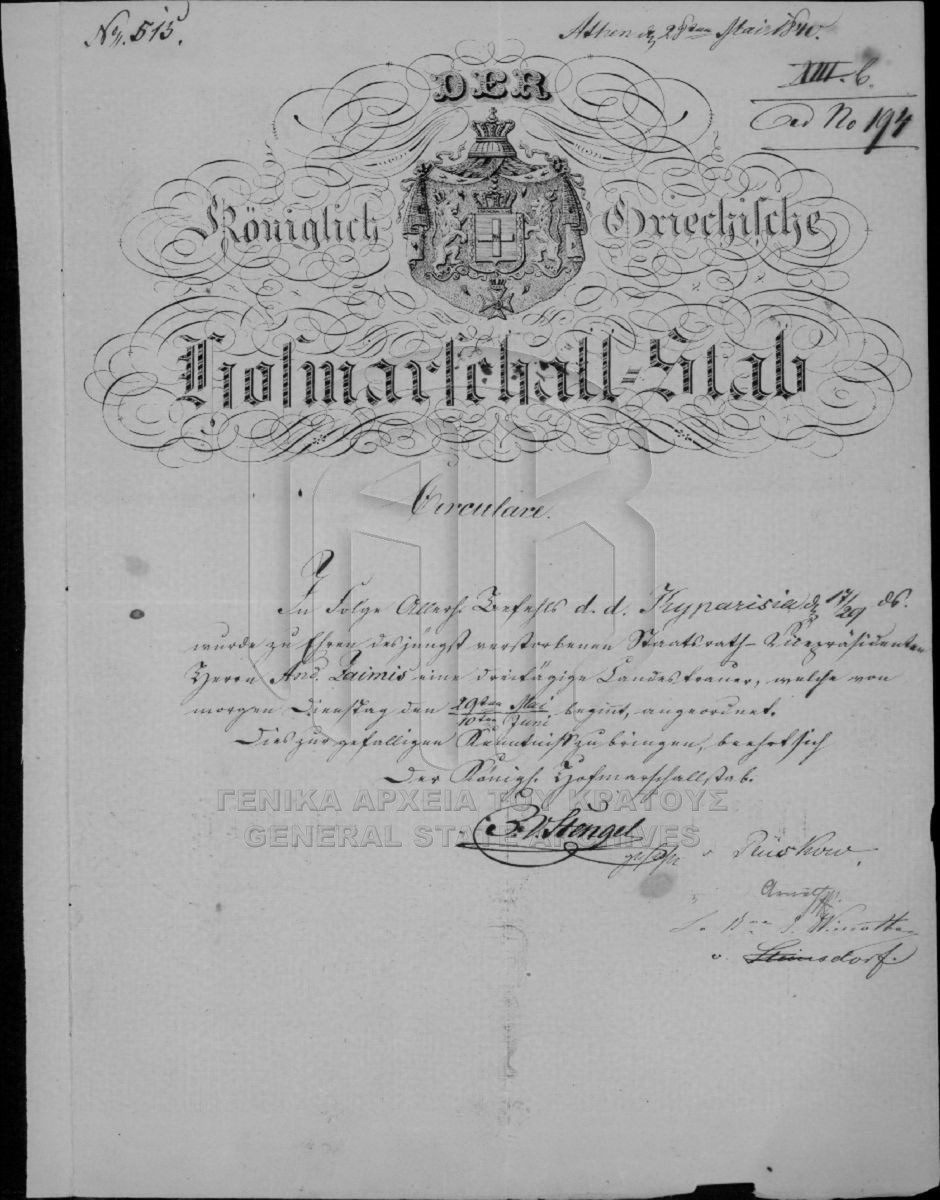 No. 515.
Athen d. 28ten Mai 1840.
XIII. b.
ad No 194
DER
Königlich Griechische
Hofmarschall=Stab
Circulare.
In Folge Allerh. Befehls d. d. Kyparisia d. 17/29 ds.
wurde zu Ehren des jüngst verstorbenen Staatsrath-Vicepräsidenten
Herrn And. Zaimis eine dreitägige Landestrauer, welche von
morgen Dienstag den 29ten Mai/10ten Juni beginnt, angeordnet.
Dies zur gefälligen Kenntniß zu bringen, beehrt sich
Der Königl. Hofmarschallstab.
ΓΕΝΙΚΑ ΑΡΧΕΙΑ ΤΟΥ ΚΡΑΤΟΥΣ
GENERAL STATE ARCHIVES
v. Stengel